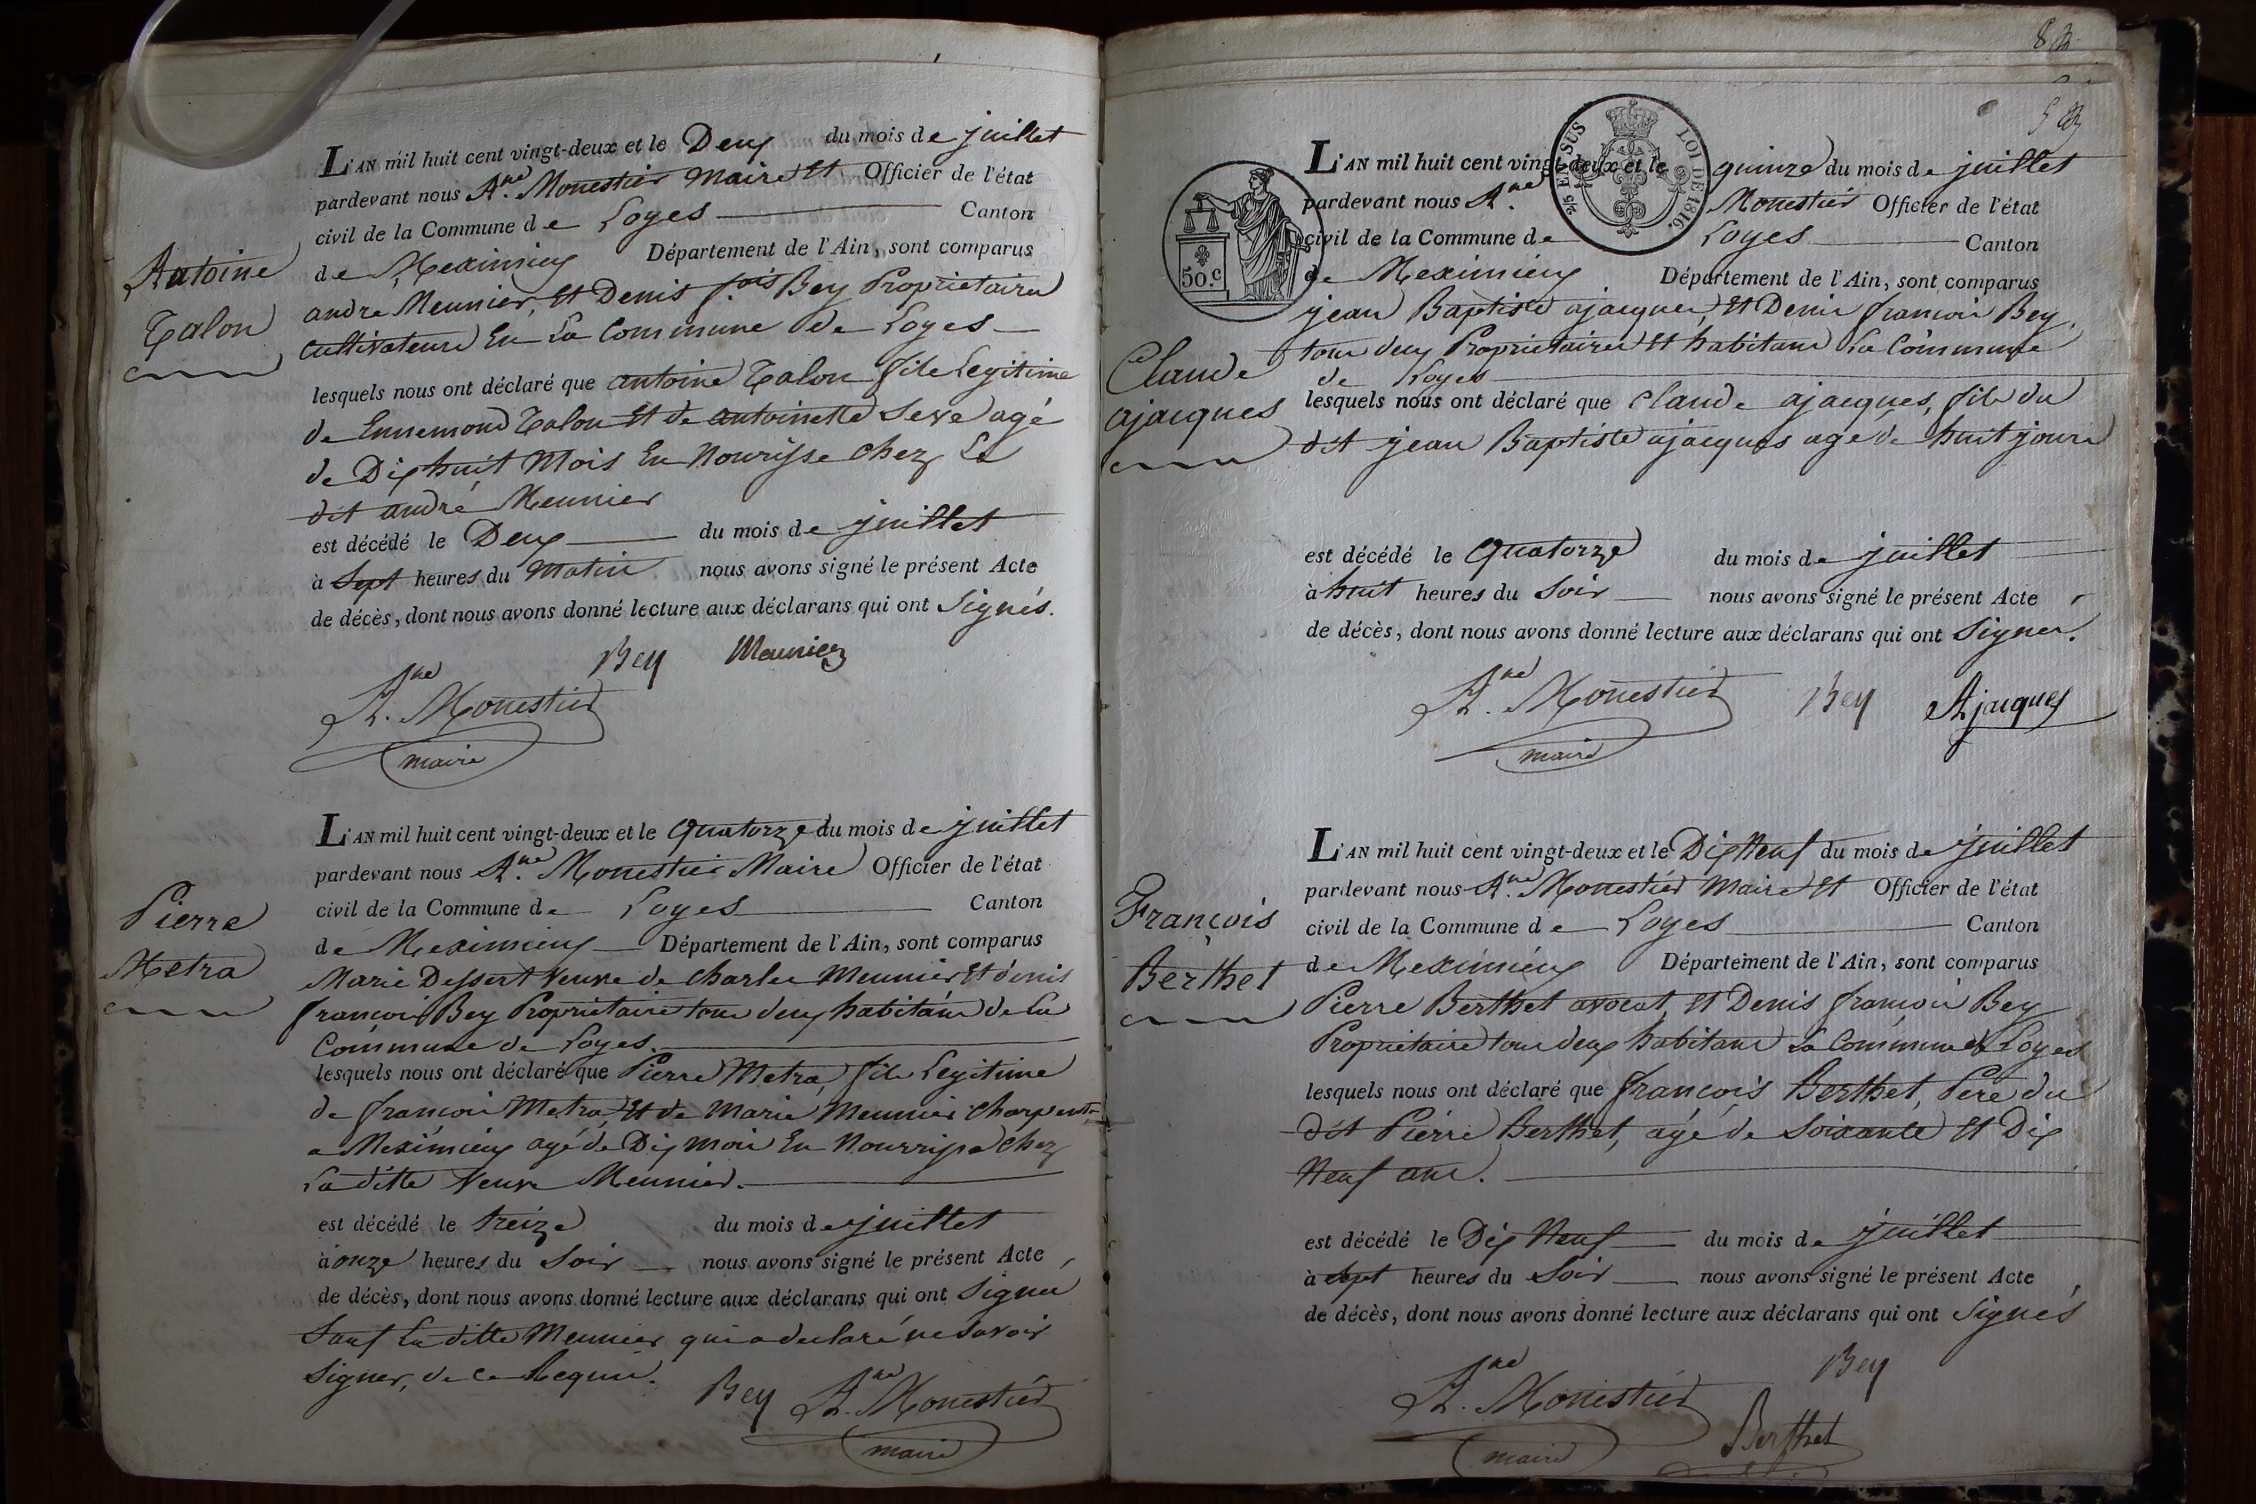 L'AN mil huit cent vingt-deux et le Deux du mois de juillet
pardevant nous A.ne Monestier Maire Et Officier de l'état
civil de la Commune de Loyes Canton
de Meximieux Département de l'Ain, sont comparus
andre Meunier, Et Denis f.ois Bey Proprietaires
Cultivateurs En La Commune de Loyes
Antoine
Talon
lesquels nous ont déclaré que antoine Talon fils Legitime
de Ennemond Talon Et de antoinette Seve agé
de Dix huit Mois En Nourisse chez Le
dit andré Meunier
est décédé le Deux du mois de juillet
à Sept heures du Matin nous avons signé le présent Acte
de décès, dont nous avons donné lecture aux déclarans qui ont Signés.
Bey Meunier
A.ne Monestier
maire
L'AN mil huit cent vingt-deux et le Quatorze du mois de juillet
pardevant nous A.ne Monestier Maire Officier de l'état
civil de la Commune de Loyes Canton
de Meximieux Département de l'Ain, sont comparus
Pierre
Metra
Marie Dessert Veuve de Charles Meunier Et denis
françois Bey Proprietaire tous deux habitans de La
Commune de Loyes.
lesquels nous ont déclaré que Pierre Metra, fils Legitime
de françois Metra, Et de Marie Meunier Charpent.
a Meximieux agé de Dix mois En Nourrisse chez
La ditte Veuve Meunier.
est décédé le treize du mois de juillet
à onze heures du Soir nous avons signé le présent Acte
de décès, dont nous avons donné lecture aux déclarans qui ont Signés
Sauf La ditte Meunier qui a declaré ne Savoir
Signer, de ce Requis.
Bey A.ne Monestier
maire
8
5
EN SUS LOI DE 1816.
50.c
L'AN mil huit cent vingt-deux et le quinze du mois de juillet
pardevant nous A.ne Monestier Officier de l'état
civil de la Commune de Loyes Canton
de Meximieux Département de l'Ain, sont comparus
jean Baptiste ajacques, Et Denis françois Bey,
tous deux Proprietaires Et habitans La Commune
de Loyes
Claude
ajacques
lesquels nous ont déclaré que Claude ajacques, fils du
dit jean Baptiste ajacques agé de huit jours
est décédé le Quatorze du mois de juillet
à huit heures du Soir nous avons signé le présent Acte
de décès, dont nous avons donné lecture aux déclarans qui ont Signer.
A.ne Monestier Bey Ajacques
maire
L'AN mil huit cent vingt-deux et le Dix Neuf du mois de juillet
pardevant nous A.ne Monestier Maire Et Officier de l'état
civil de la Commune de Loyes Canton
de Meximieux Département de l'Ain, sont comparus
François
Berthet
Pierre Berthet avocat, Et Denis françois Bey
Proprietaire tous deux habitans La Commune de Loyes
lesquels nous ont déclaré que françois Berthet, Pere du
dit Pierre Berthet, agé de Soixante Et Dix
Neuf ans.
est décédé le Dix Neuf du mois de juillet
à Sept heures du Soir nous avons signé le présent Acte
de décès, dont nous avons donné lecture aux déclarans qui ont Signés
Bey
A.ne Monestier
maire
Berthet